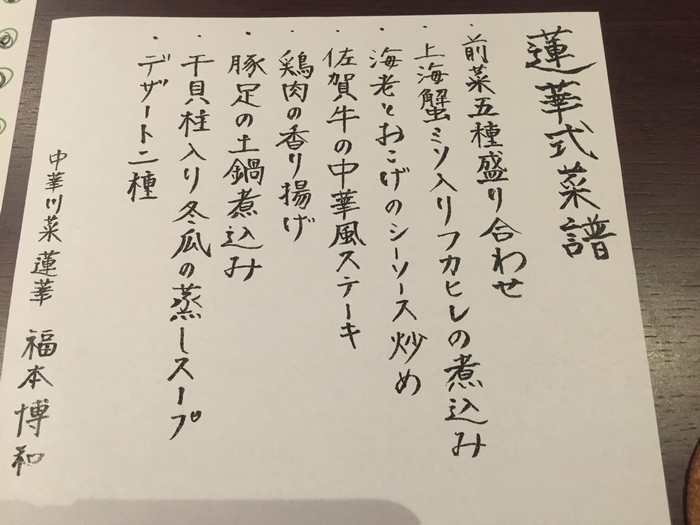 蓮華式菜譜
・前菜五種盛り合わせ
・上海蟹ミソ入りフカヒレの煮込み
・海老とおこげのシーソース炒め
・佐賀牛の中華風ステーキ
・鶏肉の香り揚げ
・豚足の土鍋煮込み
・干貝柱入り冬瓜の蒸しスープ
・デザート二種
中華川菜 蓮華 福本博和